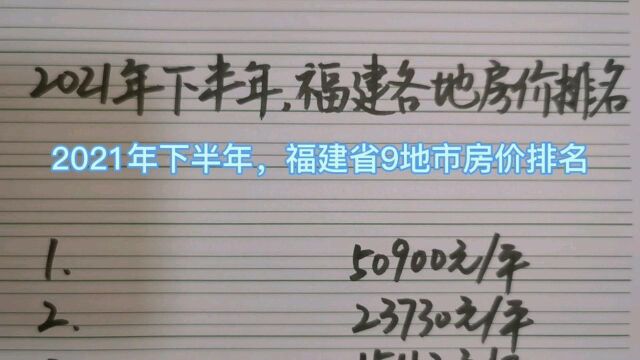 2021年下半年,福建各地房价排名
2021年下半年，福建省9地市房价排名
1. 50900元/平
2. 23730元/平